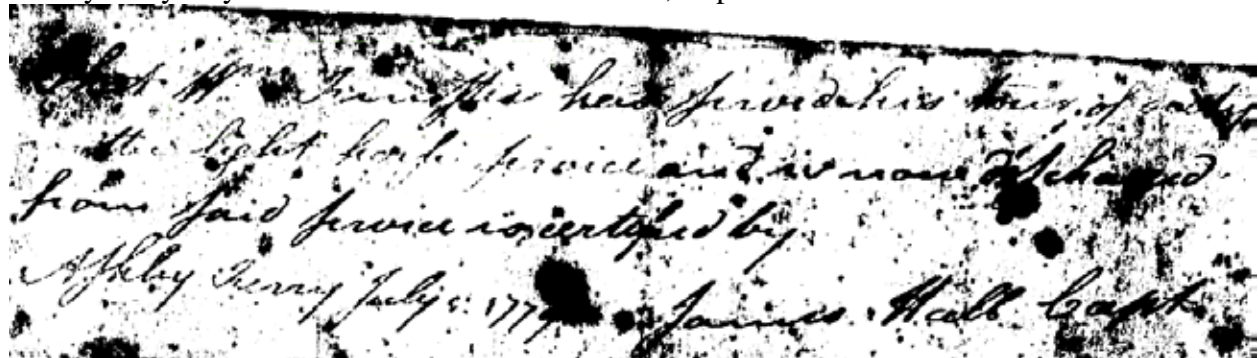 That Wm have served his tour of duty
in the light horse service and is now discharged
from said service is certified by
Ashley Ferry July 1779 James Hall Capt